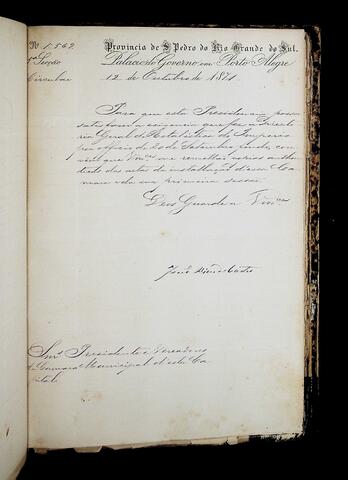 Nº 1:562
Provincia de S. Pedro do Rio Grande do Sul.
1ª Secção
Palacio do Governo em Porto Alegre
Circular
12 de Outubro de 1871
Para que esta Presidencia possa
satisfazer a exigencia que fez a Directo
ria Geral de Estatistica do Imperio
por officio de 20 de Setembro findo, con
vem que Vmces me remettão copias authen
ticadas das actas da installação d'essa Ca
mara e da sua primeira sessão
Deus Guarde a Vmces
Snrs Presidente e Vereadores
da Camara Municipal d'esta Ca
pital